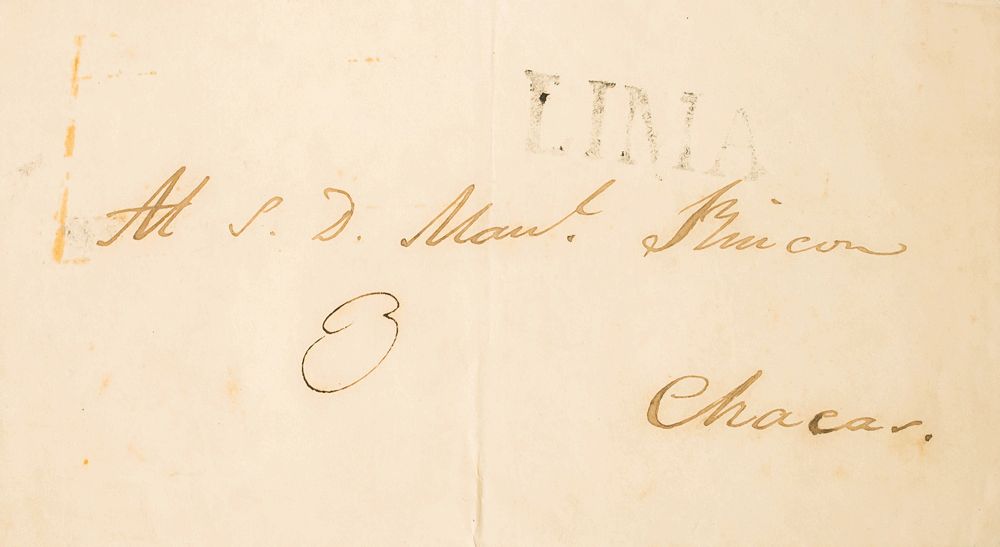 LIMA
Al S. D. Manl. Rincon
3
Chacas.